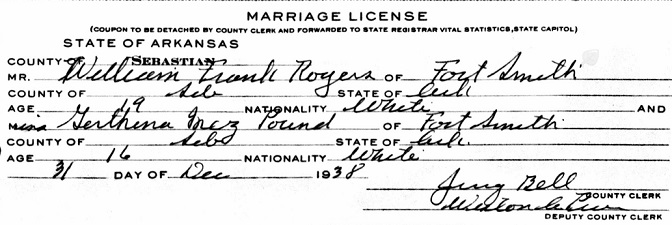 MARRIAGE LICENSE
(COUPON TO BE DETACHED BY COUNTY CLERK AND FORWARDED TO STATE REGISTRAR VITAL STATISTICS, STATE CAPITOL)
STATE OF ARKANSAS
COUNTY OF SEBASTIAN
MR. William Frank Rogers OF Fort Smith
COUNTY OF Seb STATE OF Ark
AGE 19 NATIONALITY White AND
Miss Gerthena Inez Pound OF Fort Smith
COUNTY OF Seb STATE OF Ark.
AGE 16 NATIONALITY White
31 DAY OF Dec 1938
Bell COUNTY CLERK
DEPUTY COUNTY CLERK